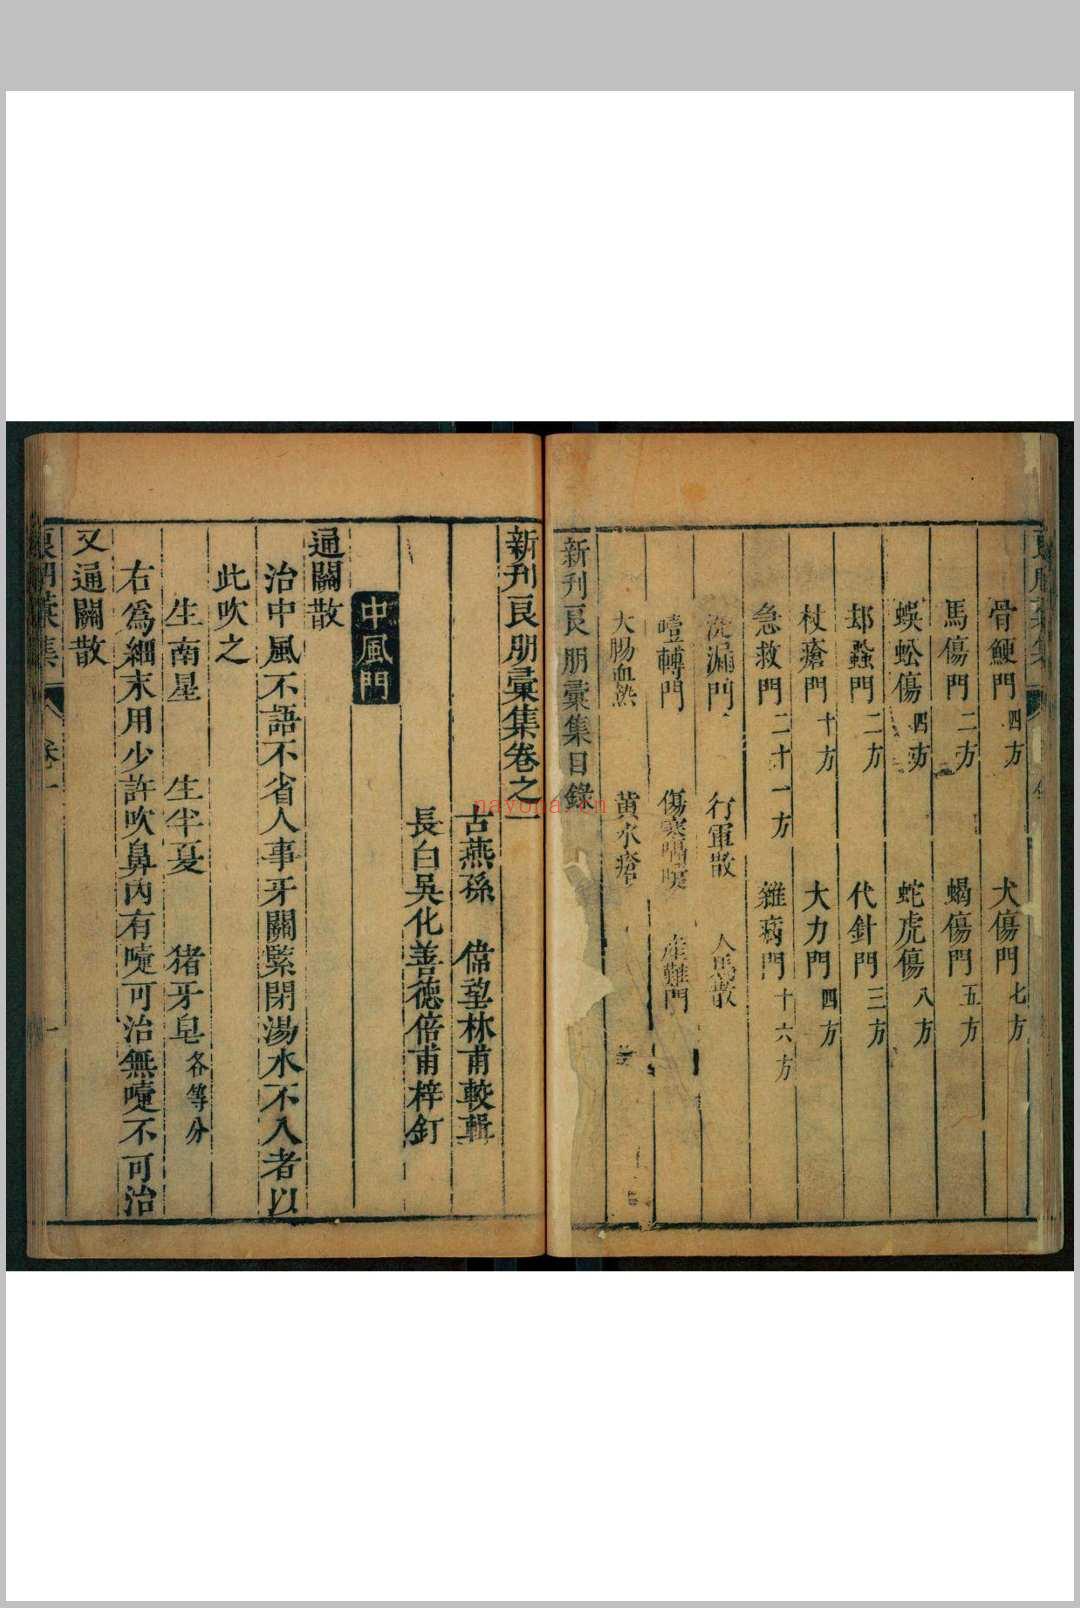 骨鯁門四方 犬傷門七方
馬傷門二方 蝎傷門五方
蜈蚣傷四方 蛇虎傷八方
邨蝨門二方 代針門三方
杖瘡門十方 大力門四方
急救門二十一方 雜病門十六方
漏門 行軍散
轉門 傷寒 產難門
大腸血熱 黃水瘡
新刊良朋彙集目錄
新刊良朋彙集卷之一
古燕孫 偉望林甫較輯
長白吳化善德倍甫梓訂
中風門
通關散
治中風不語不省人事牙關緊閉湯水不入者以
此吹之
生南星 生半夏 猪牙皂各等分
右爲細末用少許吹鼻內有嚏可治無嚏不可治
又通關散
良朋彙集 卷一 一
nayona.cn